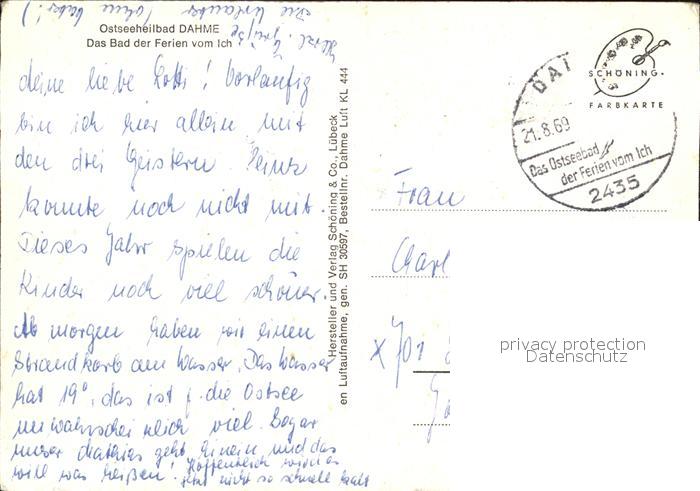 Ostseeheilbad DAHME
Das Bad der Ferien vom Ich
Meine liebe Lotti! Vorläufig
bin ich hier allein mit
den drei Geistern. Heinz
konnte noch nicht mit.
Dieses Jahr spielen die
Kinder noch viel schöner.
Ab morgen haben wir einen
Strandkorb am Wasser. Das Wasser
hat 19°, das ist f. die Ostsee
unwahrscheinlich viel. Sogar
unser Mathias geht hinein und das
will was heißen! Hoffentlich wird es
jetzt nicht so schnell kalt
Herzl. Grüße
die Urlauber (ohne Vater!)
Hersteller und Verlag Schöning & Co., Lübeck
en Luftaufnahme, gen. SH 30597, Bestellnr. Dahme Luft KL 444
SCHÖNING
FARBKARTE
21.8.69
Das Ostseebad
der Ferien vom Ich
2435
Frau
X 701
privacy protection
Datenschutz